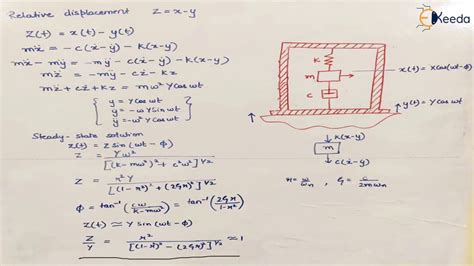 Relative displacement Z = x-y
Z(t) = x(t) - y(t)
mẍ = -c(ẋ-ẏ) - k(x-y)
mẍ - mÿ = -mÿ - c(ẋ-ẏ) - k(x-y)
mz̈ = -mÿ - cż - kz
mz̈ + cż + kz = mω² Y cos ωt
{ y = Y cos ωt
ẏ = -ωY sin ωt
ÿ = -ω² Y cos ωt }
Steady-state solution
z(t) = Z sin (ωt - φ)
Z = Yω² / [(k-mω²)² + c²ω²]^1/2
Z = r²Y / [(1-r²)² + (2ξr)²]^1/2
φ = tan⁻¹ (cω / k-mω²) = tan⁻¹ (2ξr / 1-r²)
Z(t) ≃ Y sin (ωt - φ)
Z/Y = r² / [(1-r²)² - (2ξr)²]^1/2 ≈ 1
Ekeeda
K
m
c
x(t) = X cos(ωt-φ)
y(t) = Y cos ωt
k(x-y)
m
c(ẋ-ẏ)
r = ω/ωn , ξ = c/2mωn